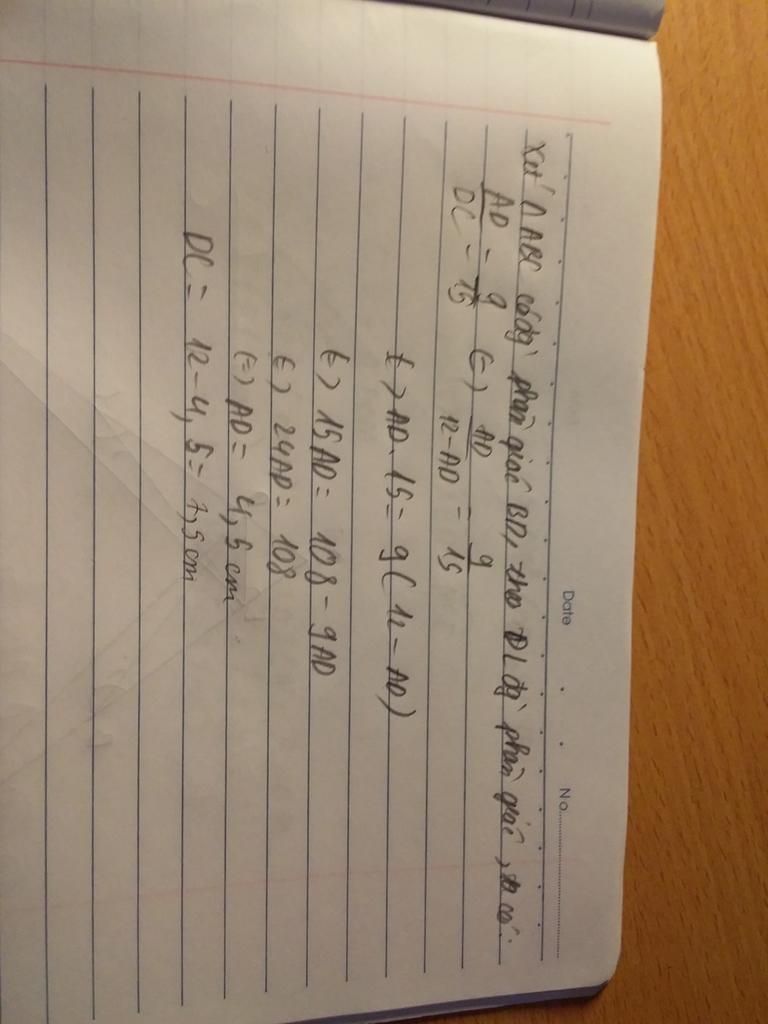 Date . . No.
Xét Δ ABC có đg` phân giác BD, theo ĐL đg` phân giác, ta có:
AD/DC = 9/15 (=) AD/12-AD = 9/15
(=) AD.15 = 9(12 - AD)
(=) 15AD = 108 - 9AD
(=) 24AD = 108
(=) AD = 4,5 cm
DC = 12 - 4,5 = 7,5 cm